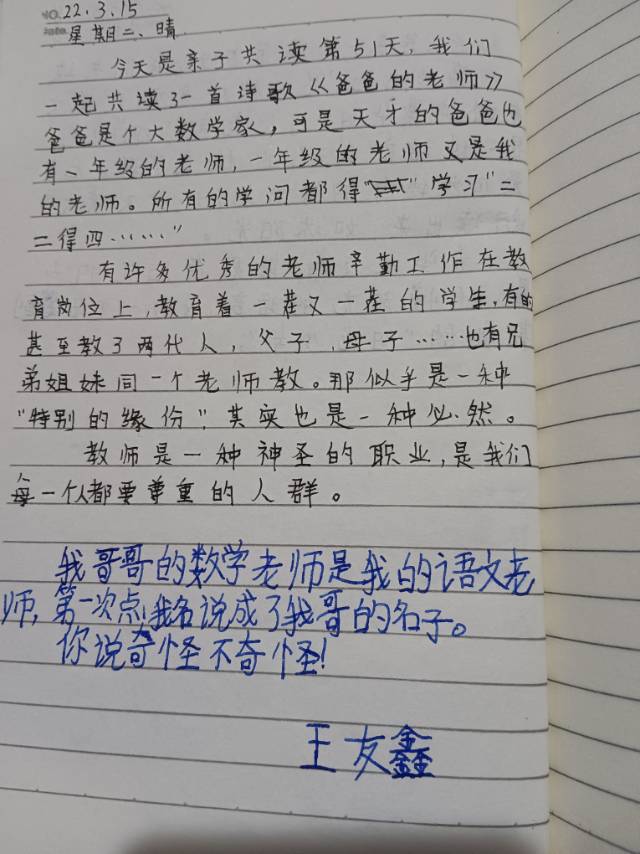 NO. 22.3.15
Date. 星期二、晴
今天是亲子共读第51天,我们
一起共读了一首诗歌《爸爸的老师》
爸爸是个大数学家,可是天才的爸爸也
有一年级的老师,一年级的老师又是我
的老师。所有的学问都得“学习“二
二得四……”
有许多优秀的老师辛勤工作在教
育岗位上,教育着一茬又一茬的学生,有的
甚至教了两代人,父子,母子……也有兄
弟姐妹同一个老师教。那似乎是一种
“特别的缘份”其实也是一种必然。
教师是一种神圣的职业,是我们
每一个人都要尊重的人群。
我哥哥的数学老师是我的语文老
师,第一次点我名说成了我哥的名子。
你说奇怪不奇怪!
王友鑫